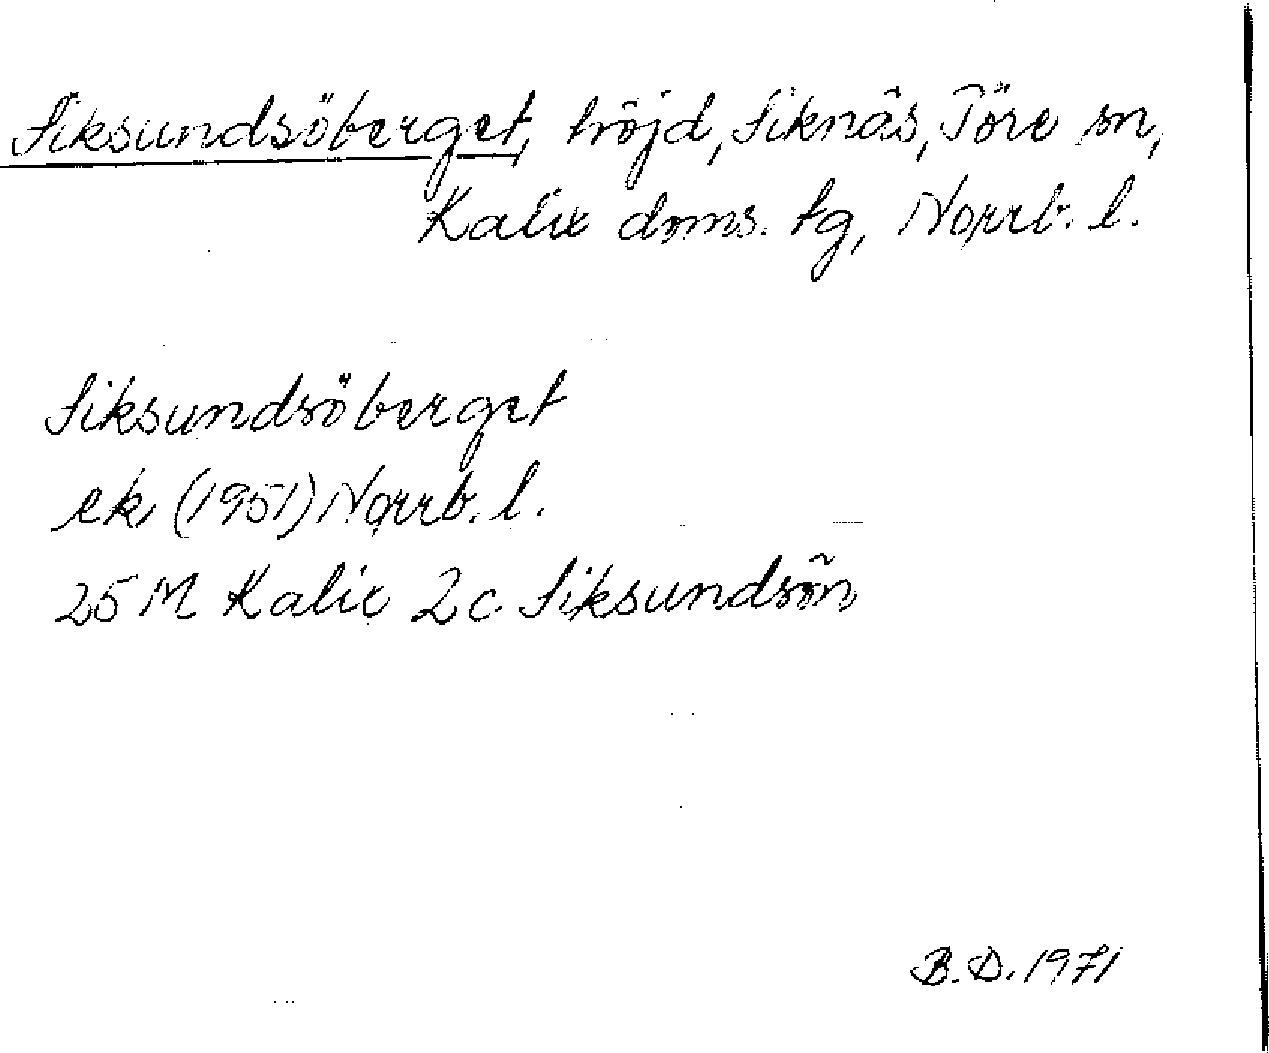 Siksundsöberget, höjd, Siknäs, Töre sn,
Kalix doms. tg, Norrb. l.
Siksundsöberget
ek (1951) Norrb. l.
25 M Kalix 2c Siksundsön
B.D. 1971